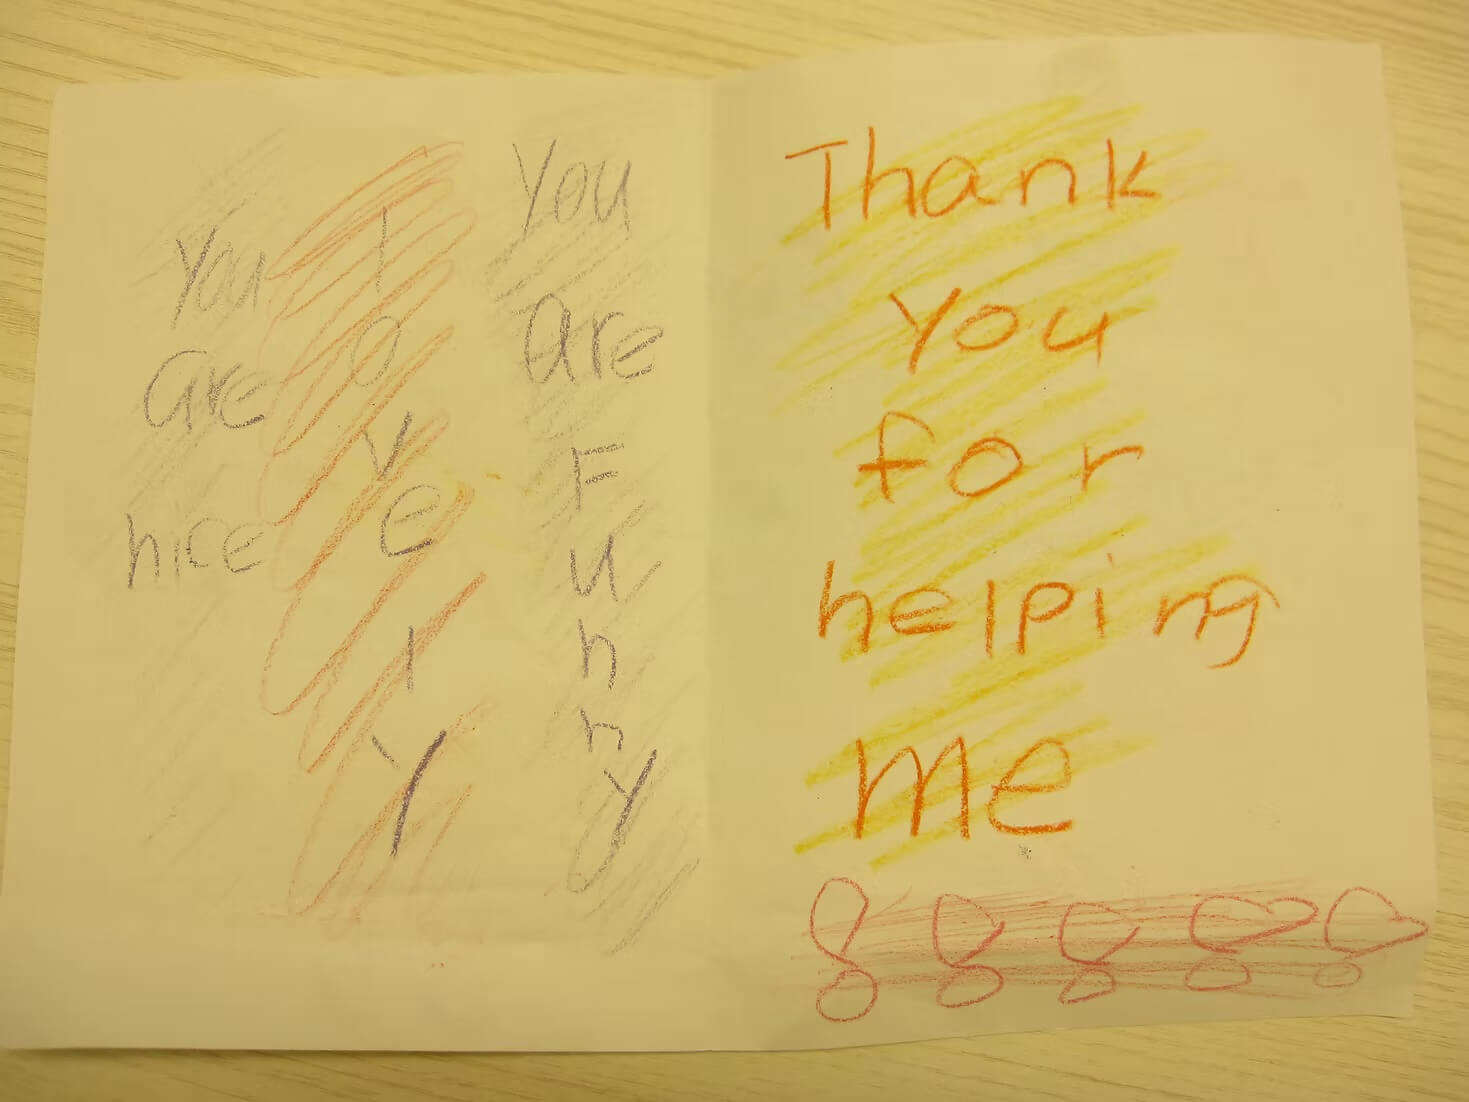 You
are
nice
lovely
You
are
Funny
Thank
you
for
helping
me
!!!!!